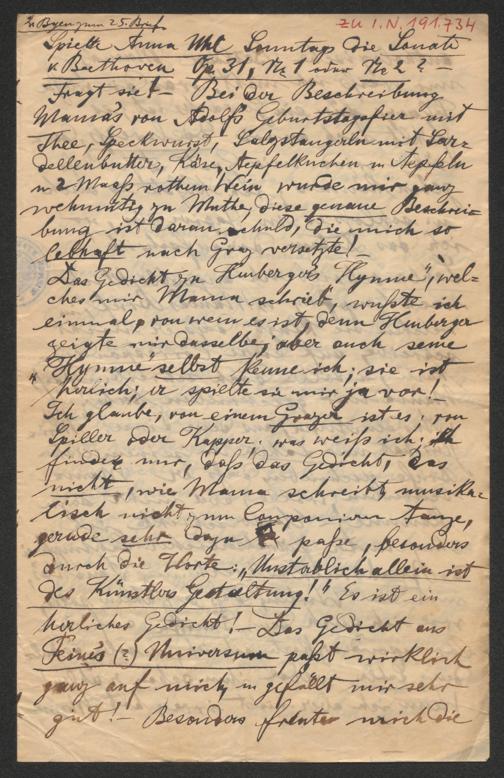 2. Bogen zum 25. Brief
zu I.N. 191.734
Spielte Anna Uhl Sonntags die Sonate
v. Beethoven Op. 31, Nr 1 oder Nr 2? –
Fragt sie! – Bei der Beschreibung
Mama's von Adolfs Geburtstagsfeier mit
Thee, Speckwurst, Salzstangerln mit Sar-
dellenbutter, Käse, Aepfelkuchen u Aepfeln
u 2 Maaß rothem Wein, wurde mir ganz
wehmütig zu Muthe, diese genaue Beschrei-
bung ist daran schuld, die mich so
lebhaft nach Graz versetzte!
Das Gedicht zu Hurbergers "Hymne", wel-
ches mir Mama schrieb, wußte ich
einmal, von wem es ist, denn Hurberger
zeigte mir dasselbe; aber auch seine
"Hymne" selbst kenne ich; sie ist
herrlich; er spielte sie mir ja vor!
Ich glaube, von einem Grazer ist es; von
Spiller oder Kapper; was weiß ich; ich
finde nur, daß das Gedicht, das
nicht, wie Mama schreibt, musika-
lisch nicht zum Componieren tauge,
gerade sehr dazu passe, besonders
durch die Worte: "Unsterblich allein ist
des Künstlers Gestaltung!" Es ist ein
herliches Gedicht! – Das Gedicht aus
Feines (?) Universum paßt wirklich
ganz auf mich, u gefällt mir sehr
gut! – Besonders freute mich die